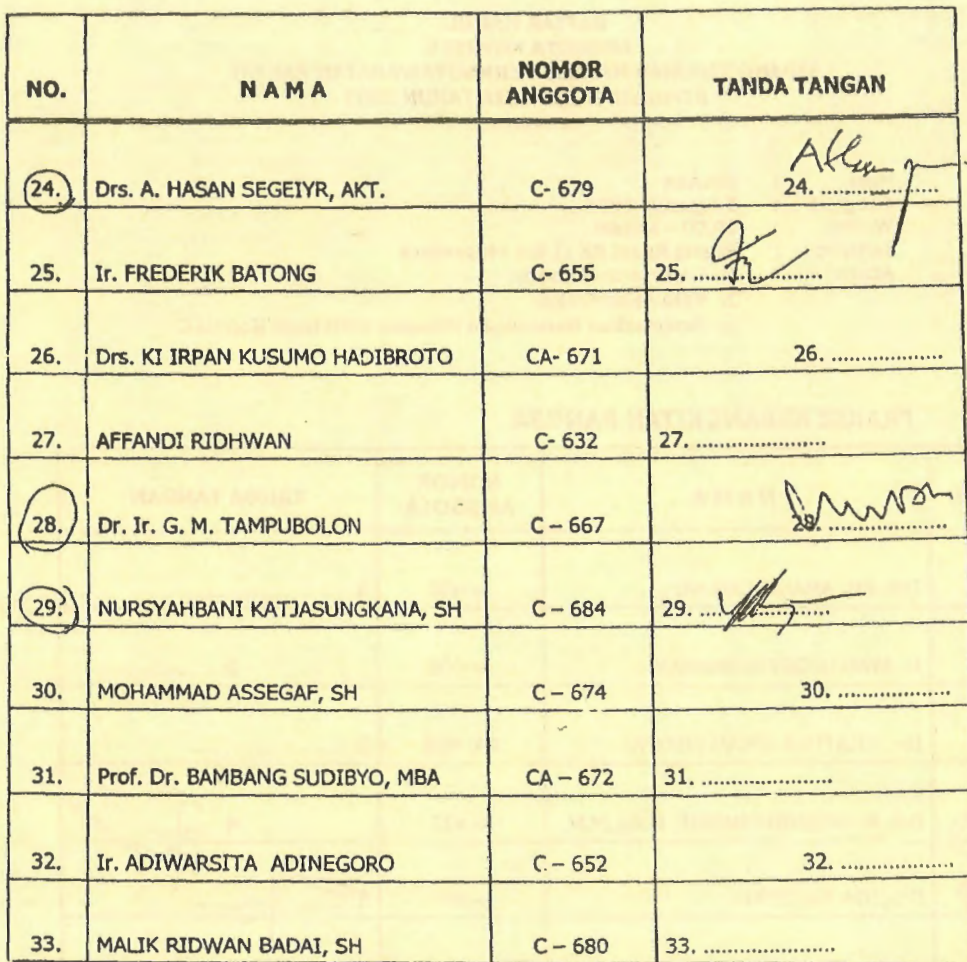 NO. N A M A NOMOR ANGGOTA TANDA TANGAN
24. Drs. A. HASAN SEGEIYR, AKT. C- 679 24. ..................
25. Ir. FREDERIK BATONG C- 655 25. ..................
26. Drs. KI IRPAN KUSUMO HADIBROTO CA- 671 26. ..................
27. AFFANDI RIDHWAN C- 632 27. ..................
28. Dr. Ir. G. M. TAMPUBOLON C – 667 28. ..................
29. NURSYAHBANI KATJASUNGKANA, SH C – 684 29. ..................
30. MOHAMMAD ASSEGAF, SH C – 674 30. ..................
31. Prof. Dr. BAMBANG SUDIBYO, MBA CA – 672 31. ..................
32. Ir. ADIWARSITA ADINEGORO C – 652 32. ..................
33. MALIK RIDWAN BADAI, SH C – 680 33. ..................